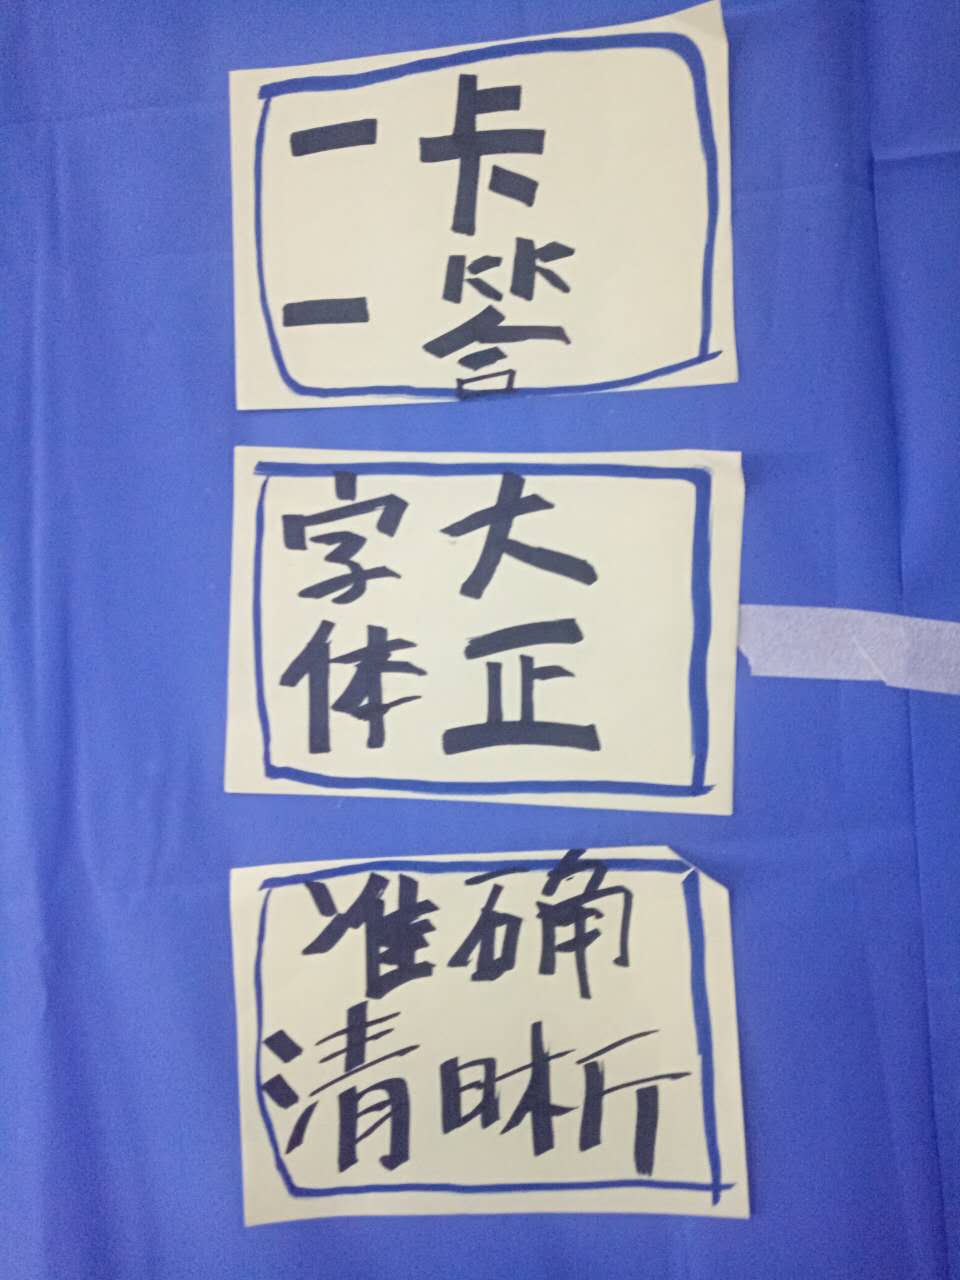 一卡
一答
字大
体正
准确
清晰